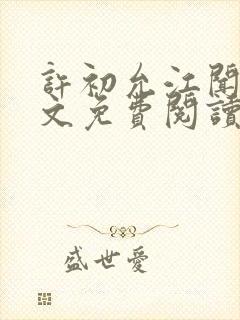 許初允江聞
文免費閱讀
盛世愛